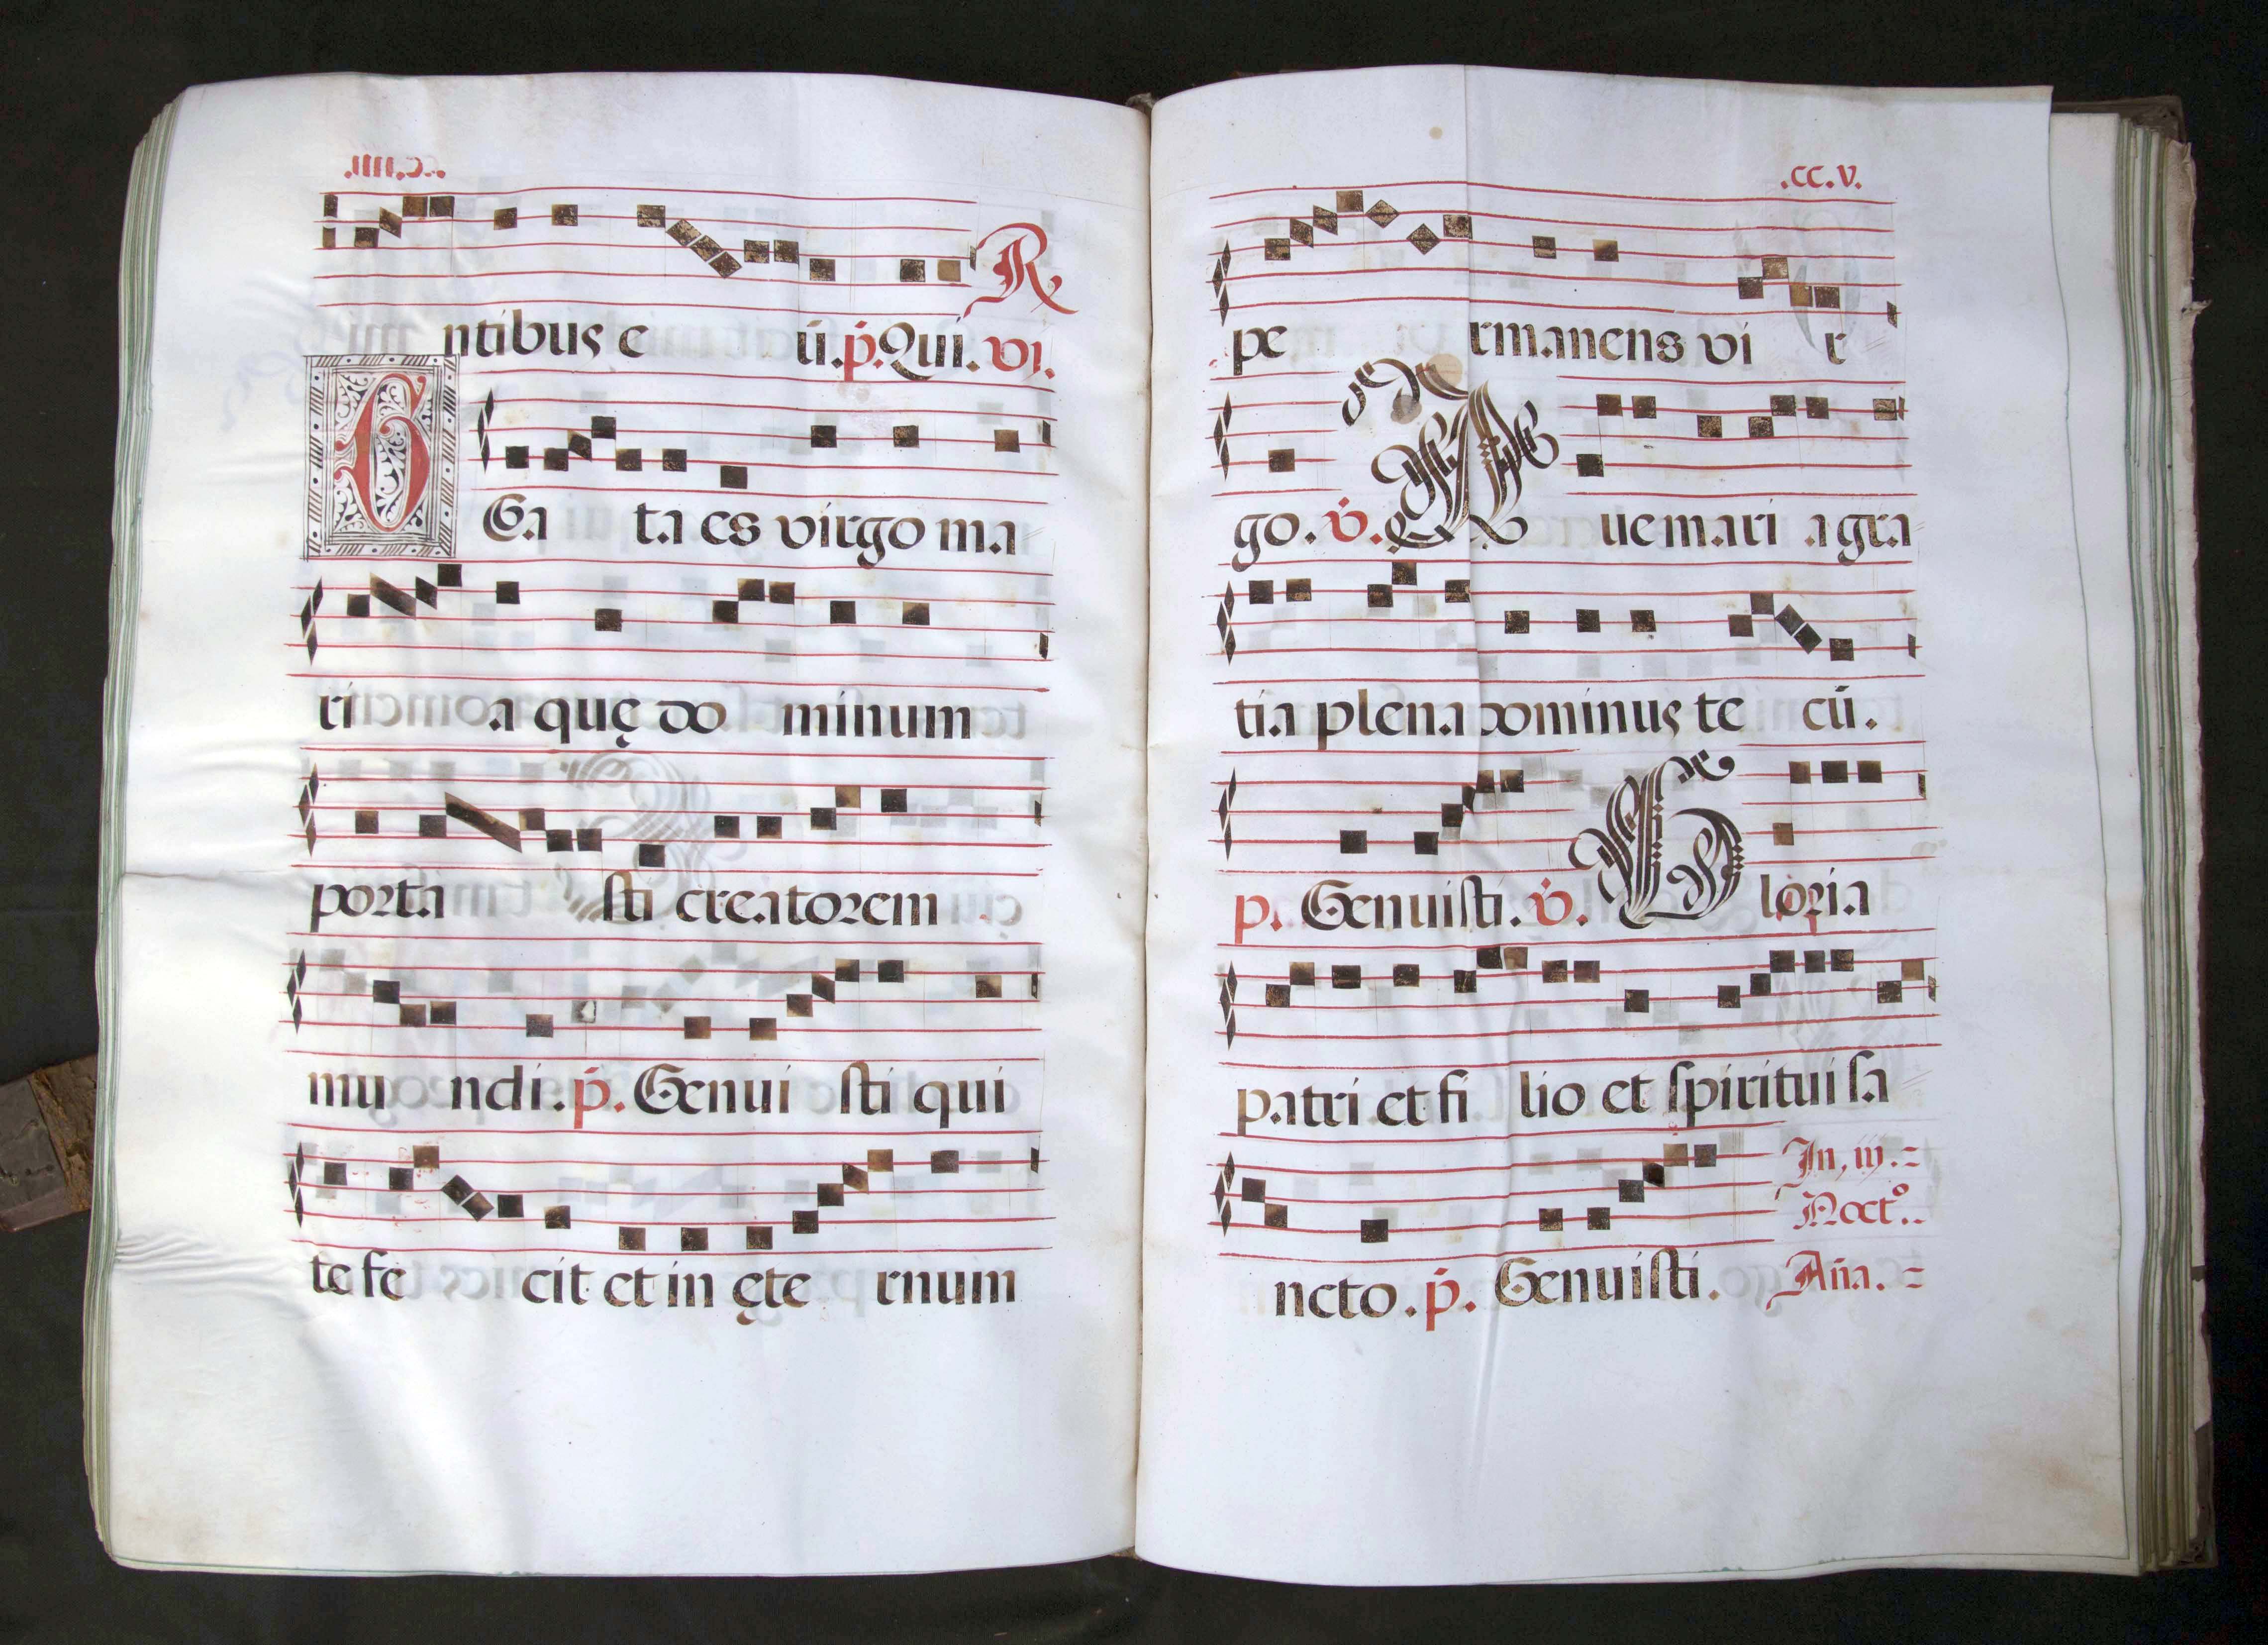 ntibus e ū. p̄. Qui. VI.
R
B Ea ta es virgo ma
ri a quę do minum
porta sti creatorem
mu ndi. p̄. Genui sti qui
te fe cit et in ęte rnum
.cc.v.
pe rmanens vi r
go. v̇. A ue mari a gra
tia plena dominus te cū.
p. Genuisti. v̇. G loria
patri et fi lio et spiritui sa
ncto. p̄. Genuisti.
In, iij.
Noctº.
Aña.